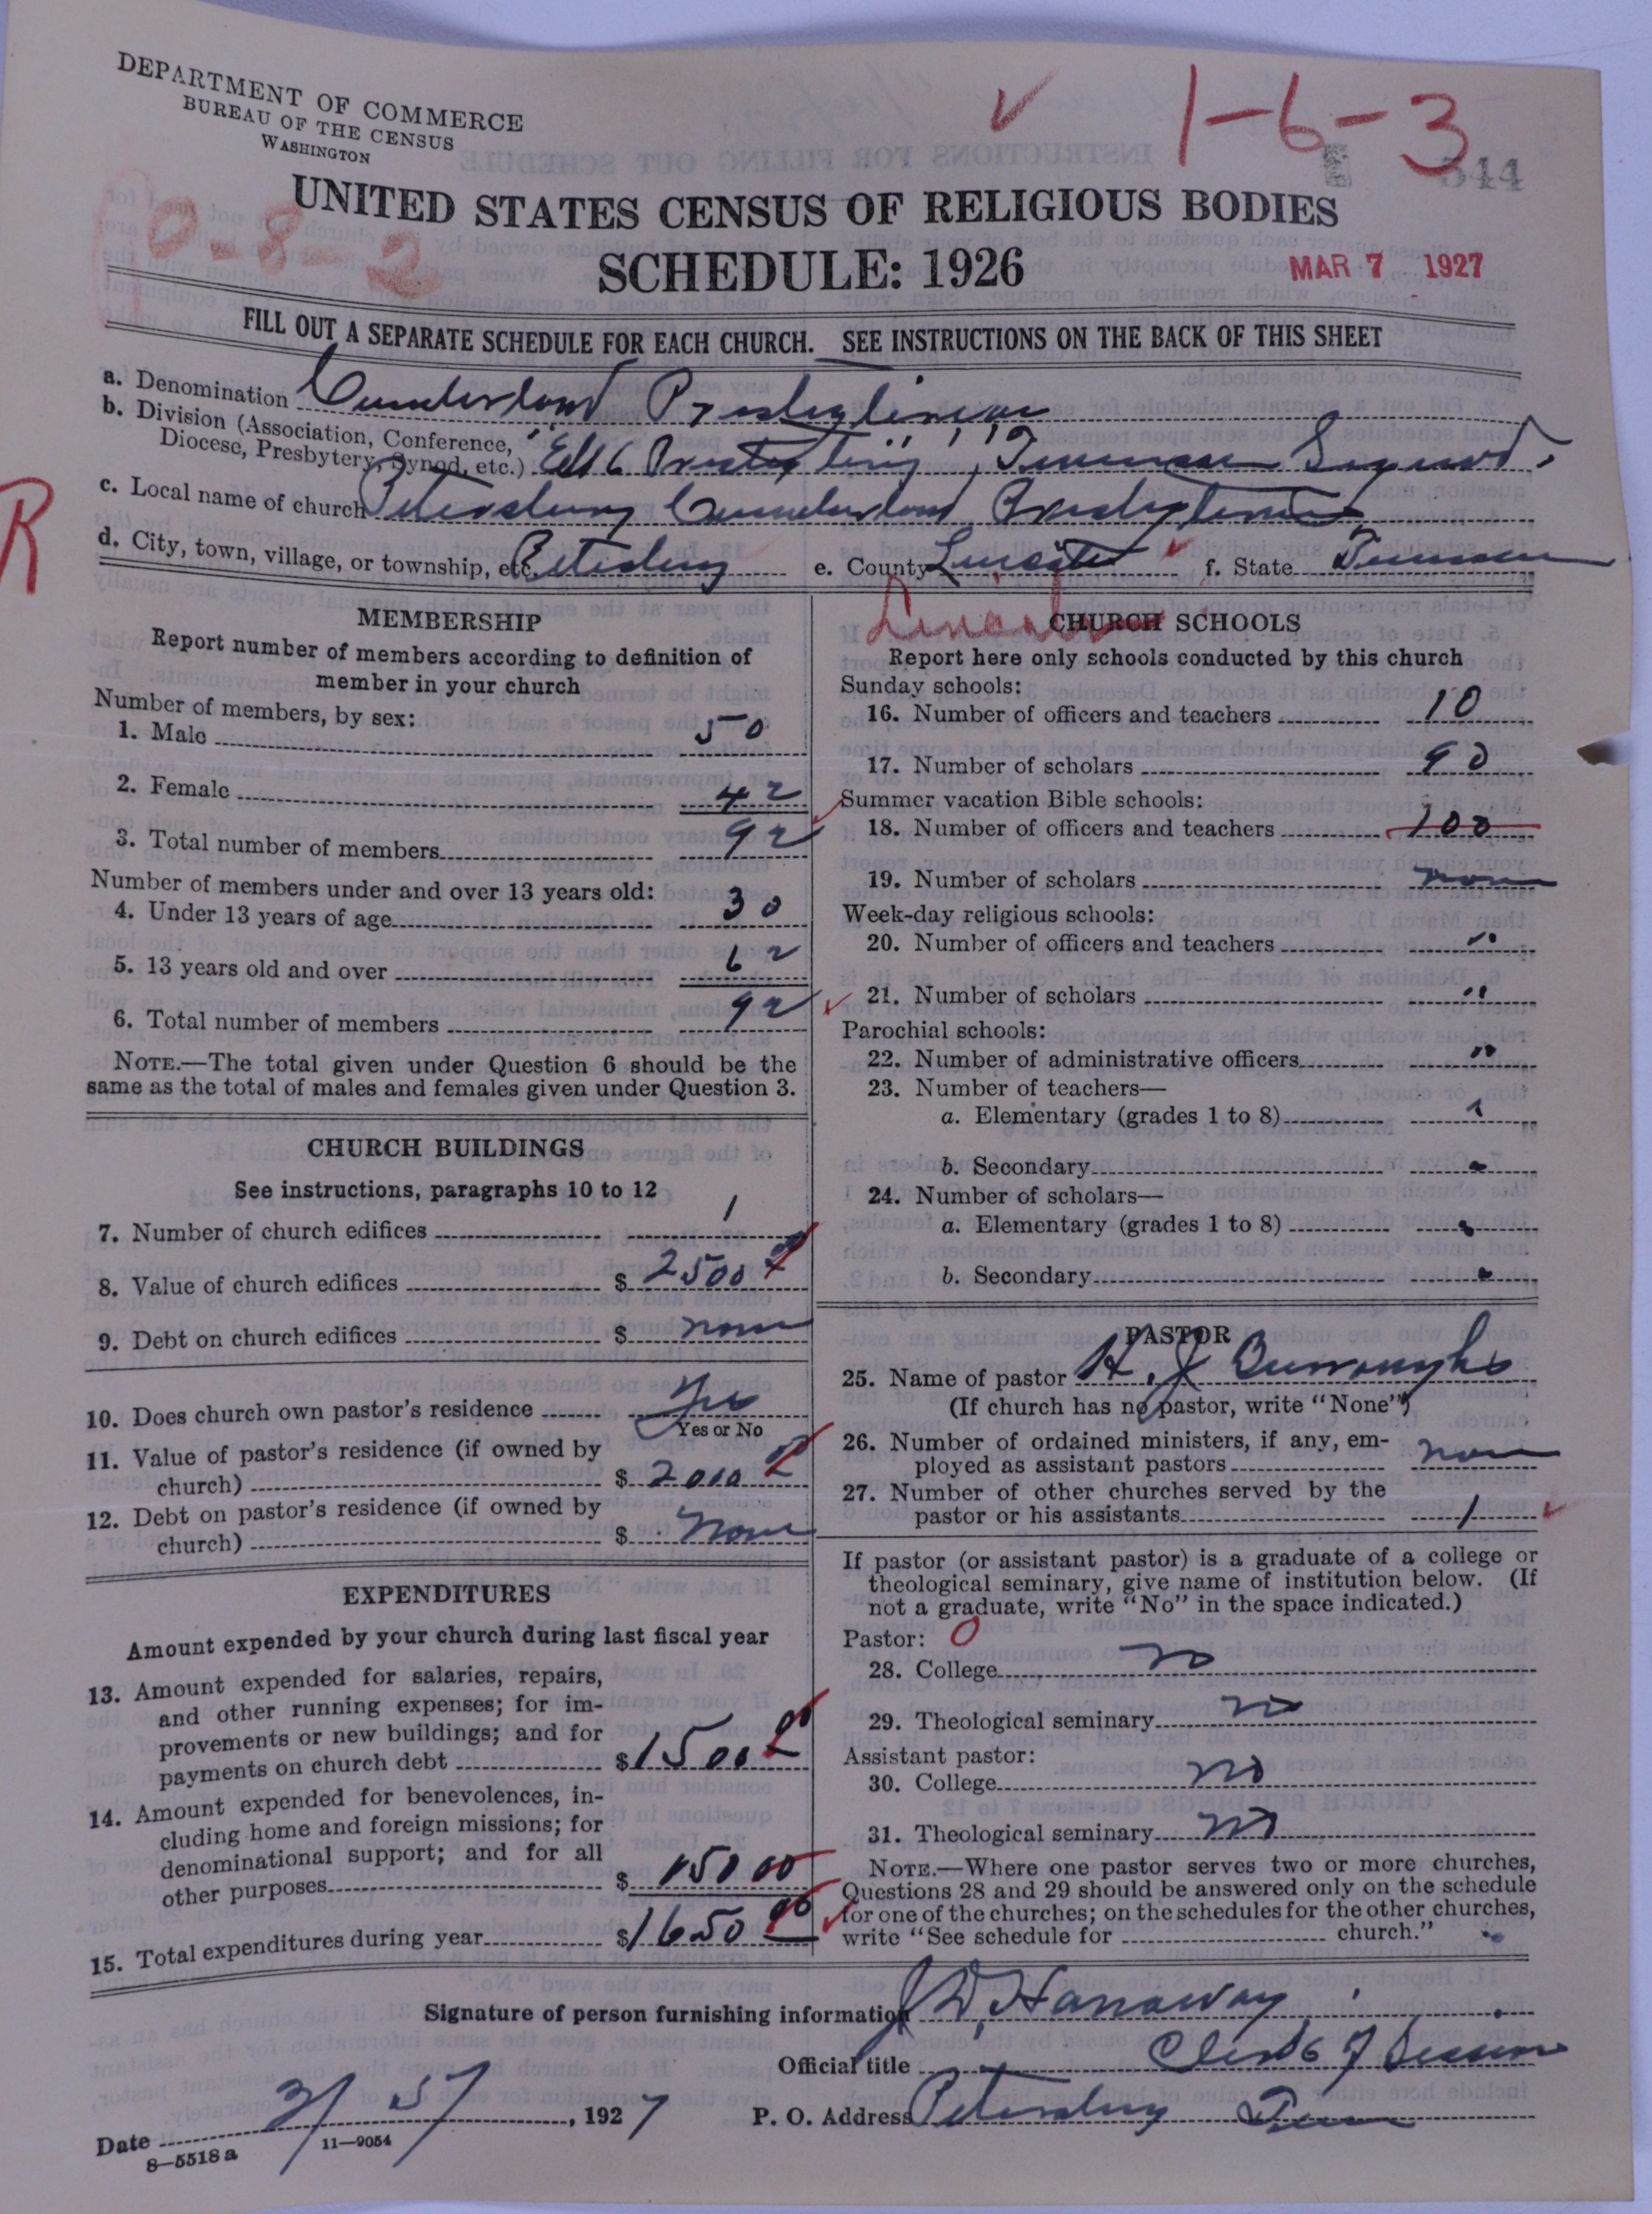 DEPARTMENT OF COMMERCE
BUREAU OF THE CENSUS
WASHINGTON
1-6-3
544
UNITED STATES CENSUS OF RELIGIOUS BODIES
0-8-2
SCHEDULE: 1926
MAR 7 1927
FILL OUT A SEPARATE SCHEDULE FOR EACH CHURCH. SEE INSTRUCTIONS ON THE BACK OF THIS SHEET
a. Denomination Cumberland Presbyterian
b. Division (Association, Conference, Diocese, Presbytery, Synod, etc.) Elk Presbytery, Tennessee Synod,
c. Local name of church Petersburg Cumberland Presbyterian
R
d. City, town, village, or township, etc. Petersburg e. County Lincoln f. State Tennessee
Lincoln
MEMBERSHIP
Report number of members according to definition of
member in your church
Number of members, by sex:
1. Male 50
2. Female 42
3. Total number of members 92
Number of members under and over 13 years old:
4. Under 13 years of age 30
5. 13 years old and over 62
6. Total number of members 92
NOTE.—The total given under Question 6 should be the
same as the total of males and females given under Question 3.
CHURCH BUILDINGS
See instructions, paragraphs 10 to 12
7. Number of church edifices 1
8. Value of church edifices $ 2500 00
9. Debt on church edifices $ none
10. Does church own pastor's residence Yes
Yes or No
11. Value of pastor's residence (if owned by
church) $ 2000 00
12. Debt on pastor's residence (if owned by
church) $ None
EXPENDITURES
Amount expended by your church during last fiscal year
13. Amount expended for salaries, repairs,
and other running expenses; for im-
provements or new buildings; and for
payments on church debt $ 1500 00
14. Amount expended for benevolences, in-
cluding home and foreign missions; for
denominational support; and for all
other purposes $ 150 00
15. Total expenditures during year $ 1650 00
CHURCH SCHOOLS
Report here only schools conducted by this church
Sunday schools:
16. Number of officers and teachers 10
17. Number of scholars 90
Summer vacation Bible schools:
18. Number of officers and teachers 100
19. Number of scholars none
Week-day religious schools:
20. Number of officers and teachers "
21. Number of scholars "
Parochial schools:
22. Number of administrative officers "
23. Number of teachers—
a. Elementary (grades 1 to 8)
b. Secondary
24. Number of scholars—
a. Elementary (grades 1 to 8)
b. Secondary
PASTOR
25. Name of pastor H. J. Burroughs
(If church has no pastor, write "None")
26. Number of ordained ministers, if any, em-
ployed as assistant pastors none
27. Number of other churches served by the
pastor or his assistants 1
If pastor (or assistant pastor) is a graduate of a college or
theological seminary, give name of institution below. (If
not a graduate, write "No" in the space indicated.)
Pastor: 0
28. College no
29. Theological seminary no
Assistant pastor:
30. College no
31. Theological seminary no
NOTE.—Where one pastor serves two or more churches,
Questions 28 and 29 should be answered only on the schedule
for one of the churches; on the schedules for the other churches,
write "See schedule for church."
Signature of person furnishing information J. D. Hanaway
Official title Clerk of Session
Date 3/5/, 1927 P. O. Address Petersburg Tenn
8—5518 a 11—9054